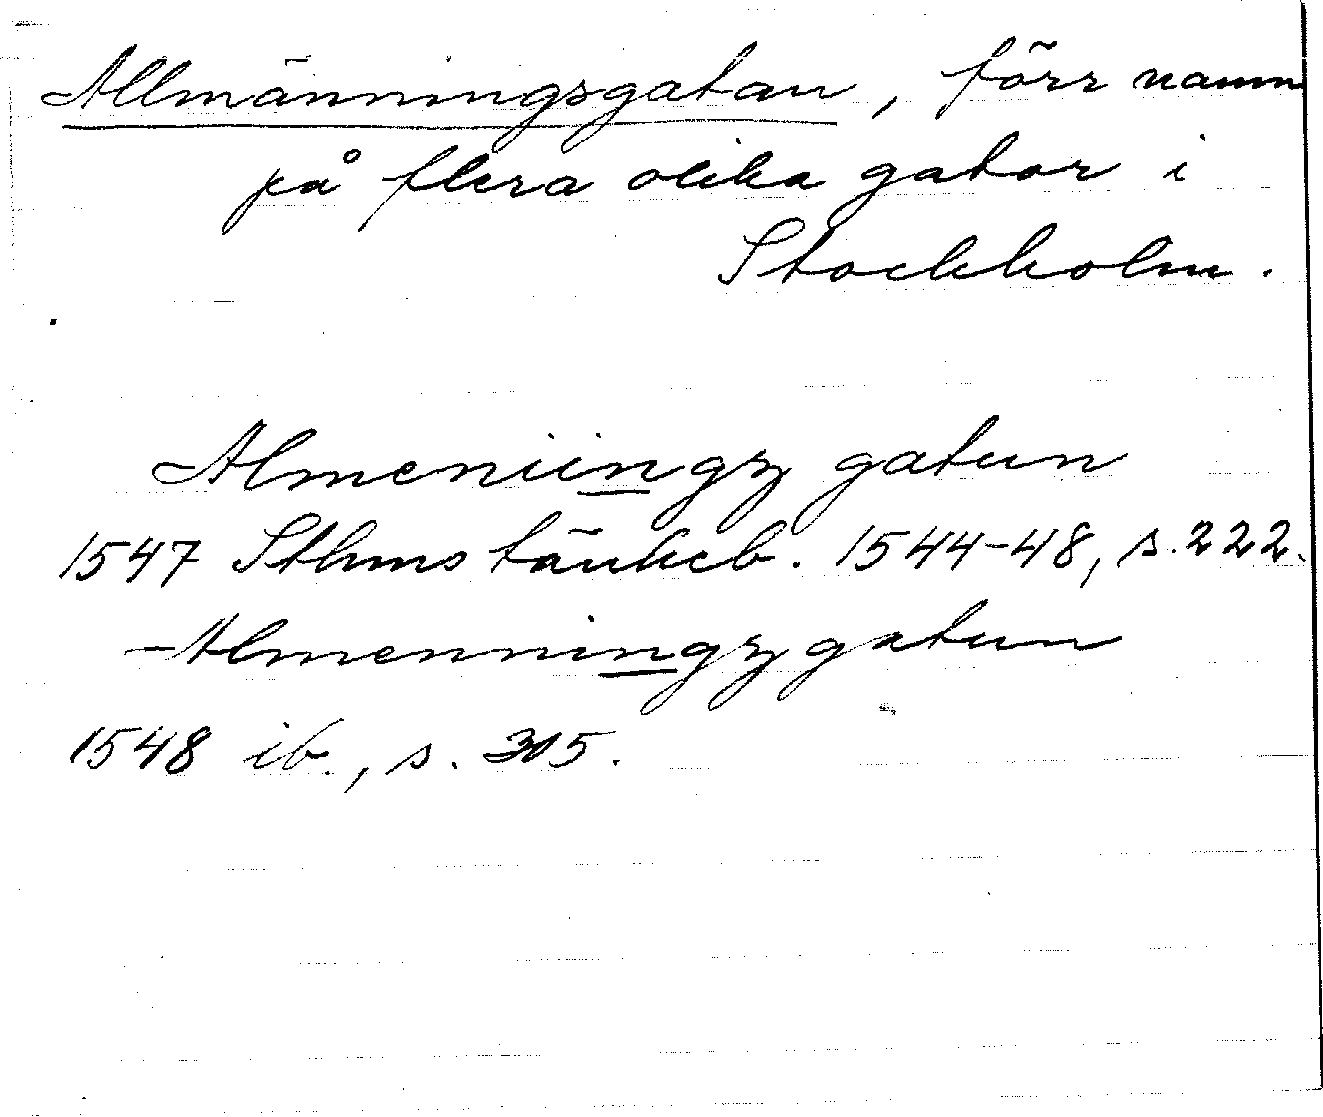 Allmänningsgatan, förr namn
på flera olika gator i
Stockholm.
Almeniingz gatun
1547 Sthms tänkeb. 1544-48, s. 222.
Almenningz gatun
1548 ib., s. 305.